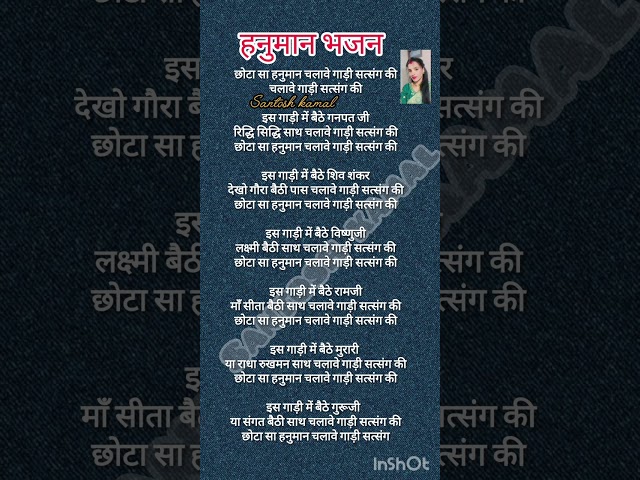 हनुमान भजन
छोटा सा हनुमान चलावे गाड़ी सत्संग की
चलावे गाड़ी सत्संग की
Santosh kamal
इस गाड़ी में बैठे गनपत जी
रिद्धि सिद्धि साथ चलावे गाड़ी सत्संग की
छोटा सा हनुमान चलावे गाड़ी सत्संग की
इस गाड़ी में बैठे शिव शंकर
देखो गौरा बैठी पास चलावे गाड़ी सत्संग की
छोटा सा हनुमान चलावे गाड़ी सत्संग की
इस गाड़ी में बैठे विष्णुजी
लक्ष्मी बैठी साथ चलावे गाड़ी सत्संग की
छोटा सा हनुमान चलावे गाड़ी सत्संग की
इस गाड़ी में बैठे रामजी
माँ सीता बैठी साथ चलावे गाड़ी सत्संग की
छोटा सा हनुमान चलावे गाड़ी सत्संग की
इस गाड़ी में बैठे मुरारी
या राधा रुखमन साथ चलावे गाड़ी सत्संग की
छोटा सा हनुमान चलावे गाड़ी सत्संग की
इस गाड़ी में बैठे गुरूजी
या संगत बैठी साथ चलावे गाड़ी सत्संग की
छोटा सा हनुमान चलावे गाड़ी सत्संग
InShOt